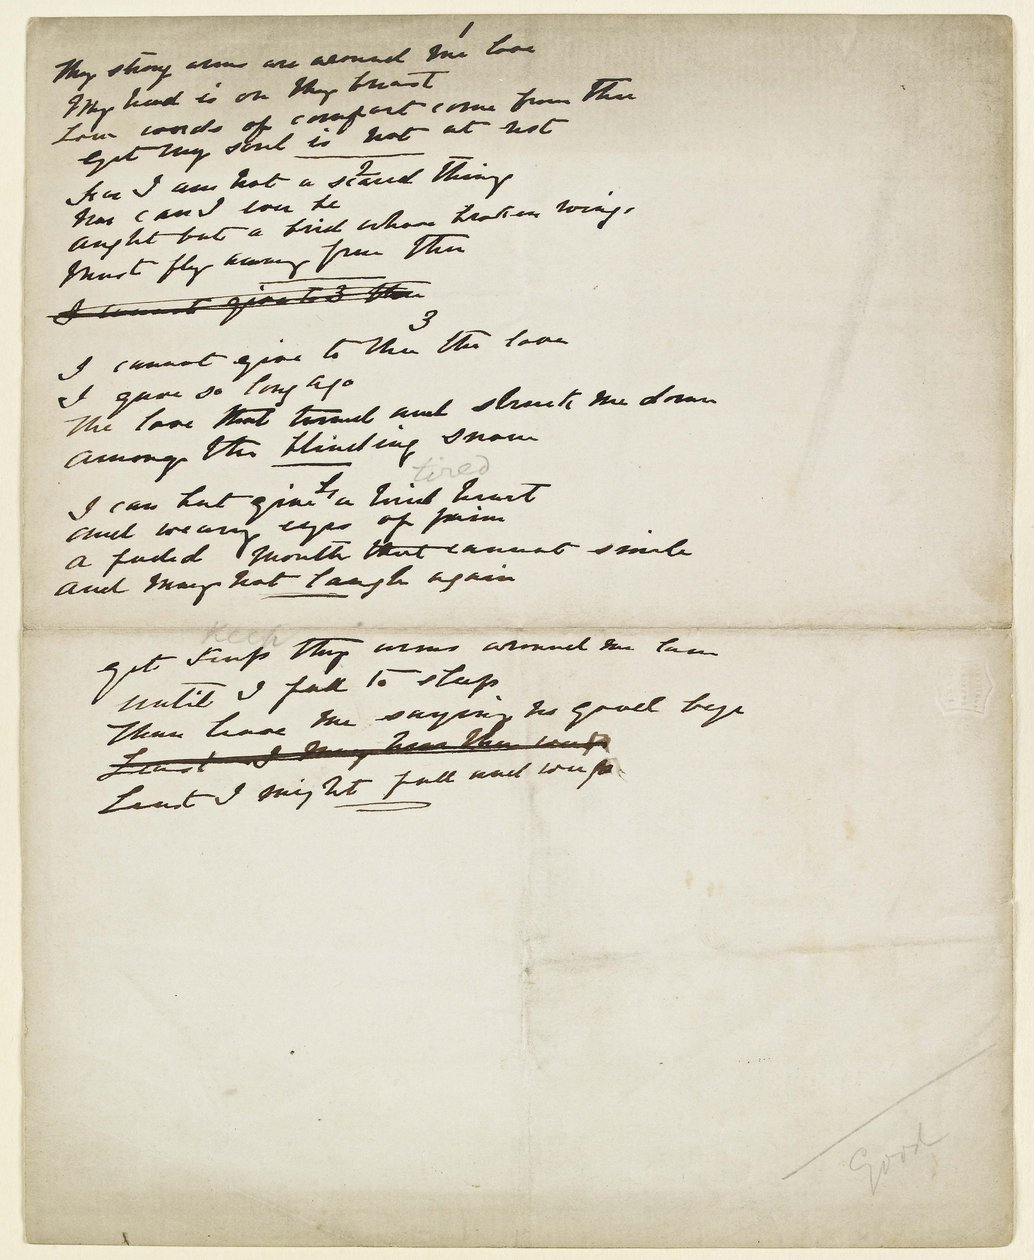 1
Thy strong arms are around me love
My head is on thy breast
Low words of comfort come from thee
Yet my soul is not at rest
2
For I am not a scared thing
Nor can I ever be
Aught but a bird whose broken wing
Must fly away from thee
I cannot give to 3 thee
3
I cannot give to thee the love
I gave so long ago
The love that turned and struck me down
Among the blinding snow
tired
4
I can but give a tired heart
And weary eyes of pain
A faded mouth that cannot smile
And may not laugh again
Keep
Yet keep thy arms around me love
Until I fall to sleep
Then leave me saying no good bye
Least I may hear thee weep
Least I might fall and weep.
Good